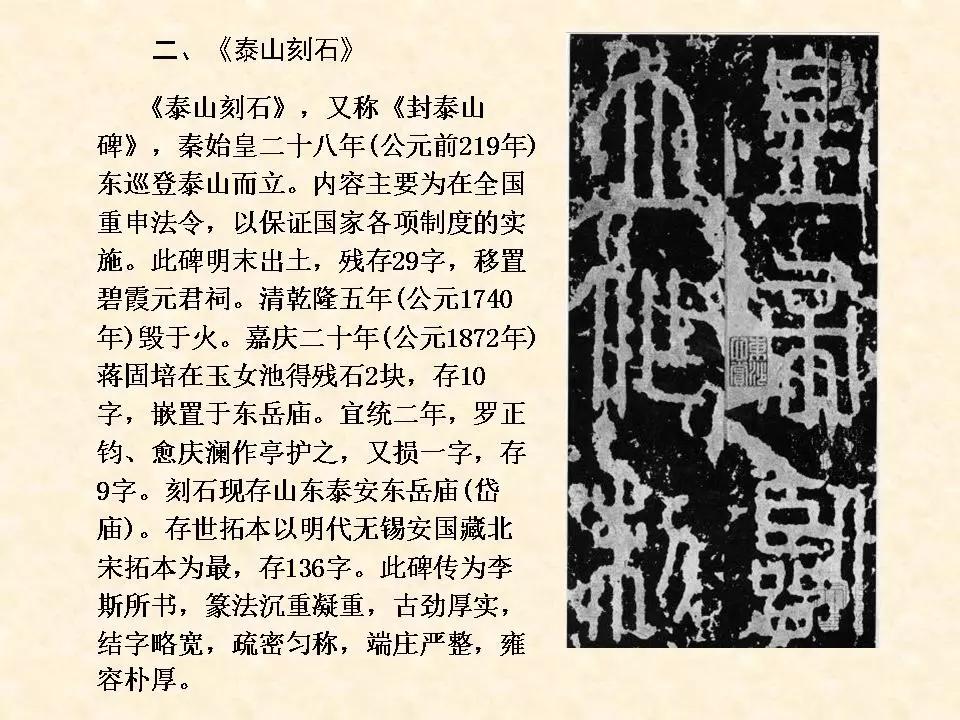 二、《泰山刻石》
《泰山刻石》，又称《封泰山
碑》，秦始皇二十八年(公元前219年)
东巡登泰山而立。内容主要为在全国
重申法令，以保证国家各项制度的实
施。此碑明末出土，残存29字，移置
碧霞元君祠。清乾隆五年(公元1740
年)毁于火。嘉庆二十年(公元1872年)
蒋固培在玉女池得残石2块，存10
字，嵌置于东岳庙。宜统二年，罗正
钧、愈庆澜作亭护之，又损一字，存
9字。刻石现存山东泰安东岳庙(岱
庙)。存世拓本以明代无锡安国藏北
宋拓本为最，存136字。此碑传为李
斯所书，篆法沉重凝重，古劲厚实，
结字略宽，疏密匀称，端庄严整，雍
容朴厚。